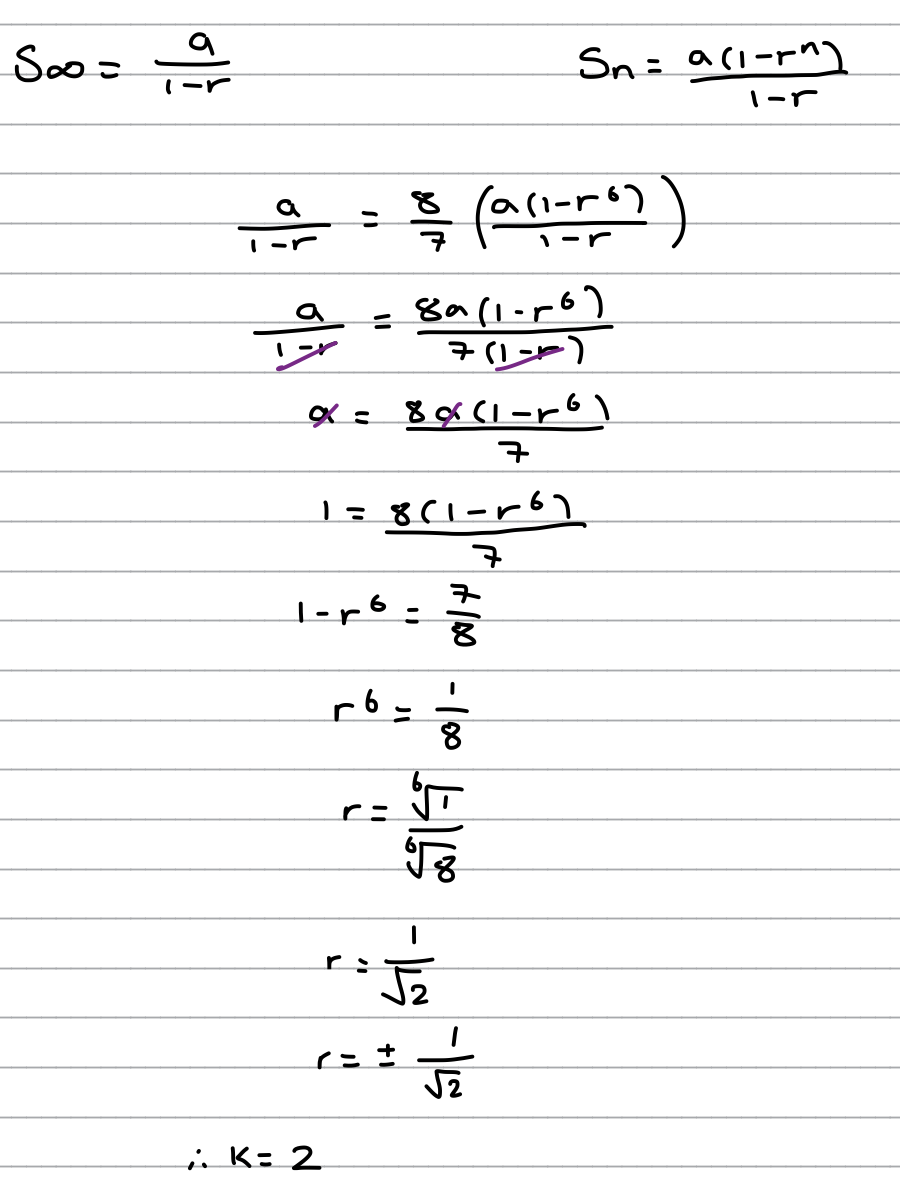 S∞ = a/(1-r)    Sn = a(1-r^n)/(1-r)
a/(1-r) = 8/7 (a(1-r^6)/(1-r))
a/(1-r) = 8a(1-r^6)/(7(1-r))
a = 8a(1-r^6)/7
1 = 8(1-r^6)/7
1-r^6 = 7/8
r^6 = 1/8
r = ⁶√1/⁶√8
r = 1/√2
r = ± 1/√2
∴ K = 2